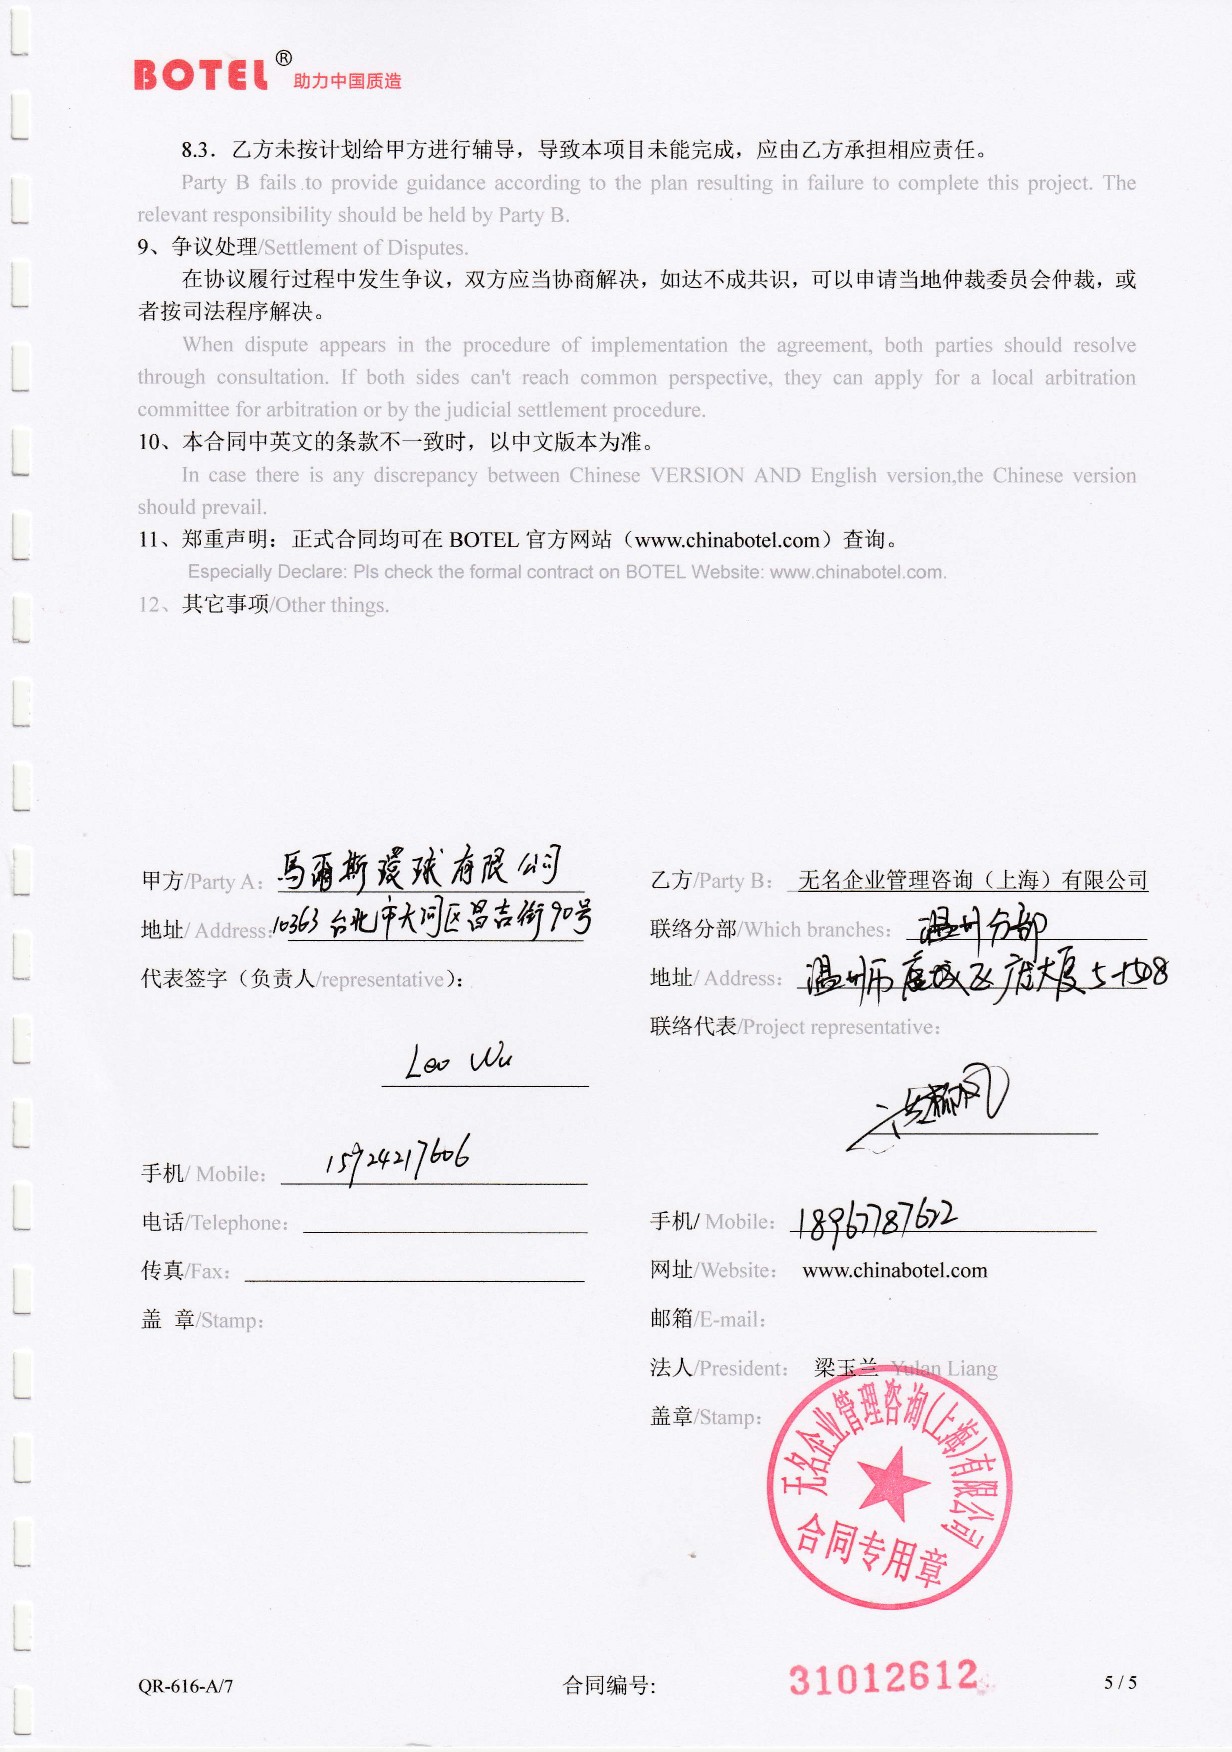 BOTEL® 助力中国质造
8.3．乙方未按计划给甲方进行辅导，导致本项目未能完成，应由乙方承担相应责任。
Party B fails to provide guidance according to the plan resulting in failure to complete this project. The
relevant responsibility should be held by Party B.
9、争议处理/Settlement of Disputes.
在协议履行过程中发生争议，双方应当协商解决，如达不成共识，可以申请当地仲裁委员会仲裁，或
者按司法程序解决。
When dispute appears in the procedure of implementation the agreement, both parties should resolve
through consultation. If both sides can't reach common perspective, they can apply for a local arbitration
committee for arbitration or by the judicial settlement procedure.
10、本合同中英文的条款不一致时，以中文版本为准。
In case there is any discrepancy between Chinese VERSION AND English version,the Chinese version
should prevail.
11、郑重声明：正式合同均可在 BOTEL 官方网站（www.chinabotel.com）查询。
Especially Declare: Pls check the formal contract on BOTEL Website: www.chinabotel.com.
12、其它事项/Other things.
甲方/Party A： 馬爾斯環球有限公司
地址/ Address: 10363 台北市大同区昌吉街90号
代表签字（负责人/representative）：
Leo Wu
手机/ Mobile： 15924217606
电话/Telephone：
传真/Fax：
盖 章/Stamp：
乙方/Party B： 无名企业管理咨询（上海）有限公司
联络分部/Which branches： 温州分部
地址/ Address： 温州市鹿城区 大厦 5-1508
联络代表/Project representative：
手机/ Mobile： 18967787622
网址/Website： www.chinabotel.com
邮箱/E-mail：
法人/President： 梁玉兰 Yulan Liang
盖章/Stamp：
无名企业管理咨询(上海)有限公司
合同专用章
QR-616-A/7 合同编号: 31012612 5 / 5